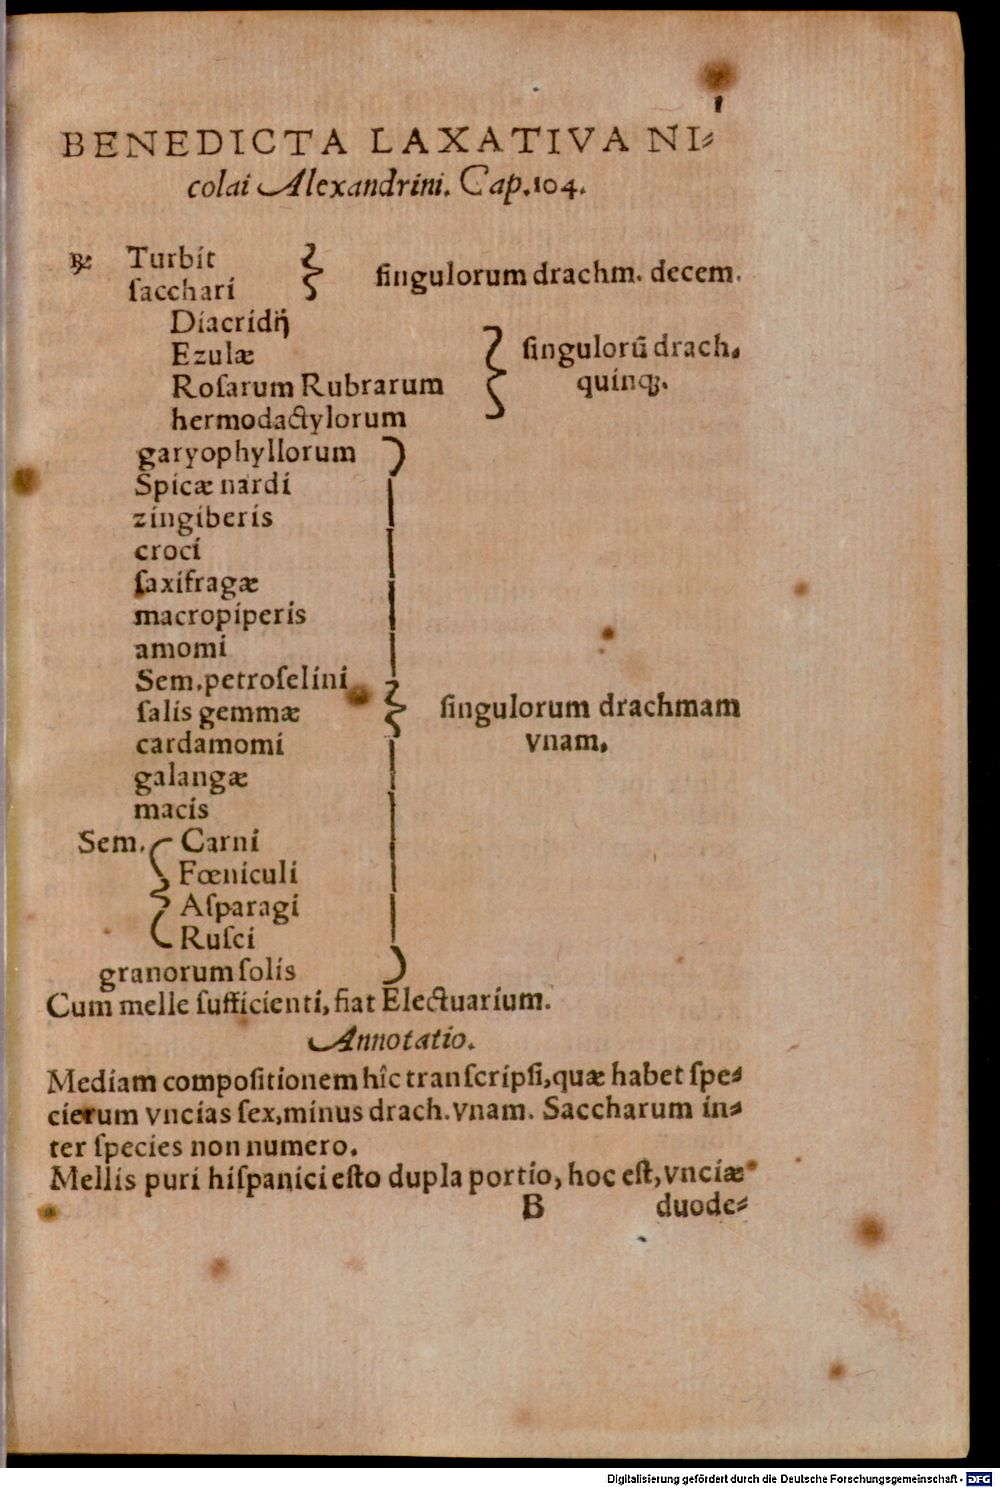 1
BENEDICTA LAXATIVA NI⸗
colai Alexandrini. Cap. 104.
℞ Turbit
ſacchari
ſingulorum drachm. decem.
Diacridij
Ezulæ
Roſarum Rubrarum
hermodactylorum
ſingulorū drach.
quinqꝫ.
garyophyllorum
Spicæ nardi
zingiberis
croci
ſaxifragæ
macropiperis
amomi
Sem. petroſelini
ſalis gemmæ
cardamomi
galangæ
macis
Sem. Carni
Fœniculi
Aſparagi
Ruſci
granorum ſolis
ſingulorum drachmam
vnam.
Cum melle ſufficienti, fiat Electuarium.
Annotatio.
Mediam compoſitionem hîc tranſcripſi, quæ habet ſpe⸗
cierum vncias ſex, minus drach. vnam. Saccharum in⸗
ter species non numero.
Mellis puri hiſpanici eſto dupla portio, hoc eſt, vnciæ
B duode⸗
Digitalisierung gefördert durch die Deutsche Forschungsgemeinschaft - DFG